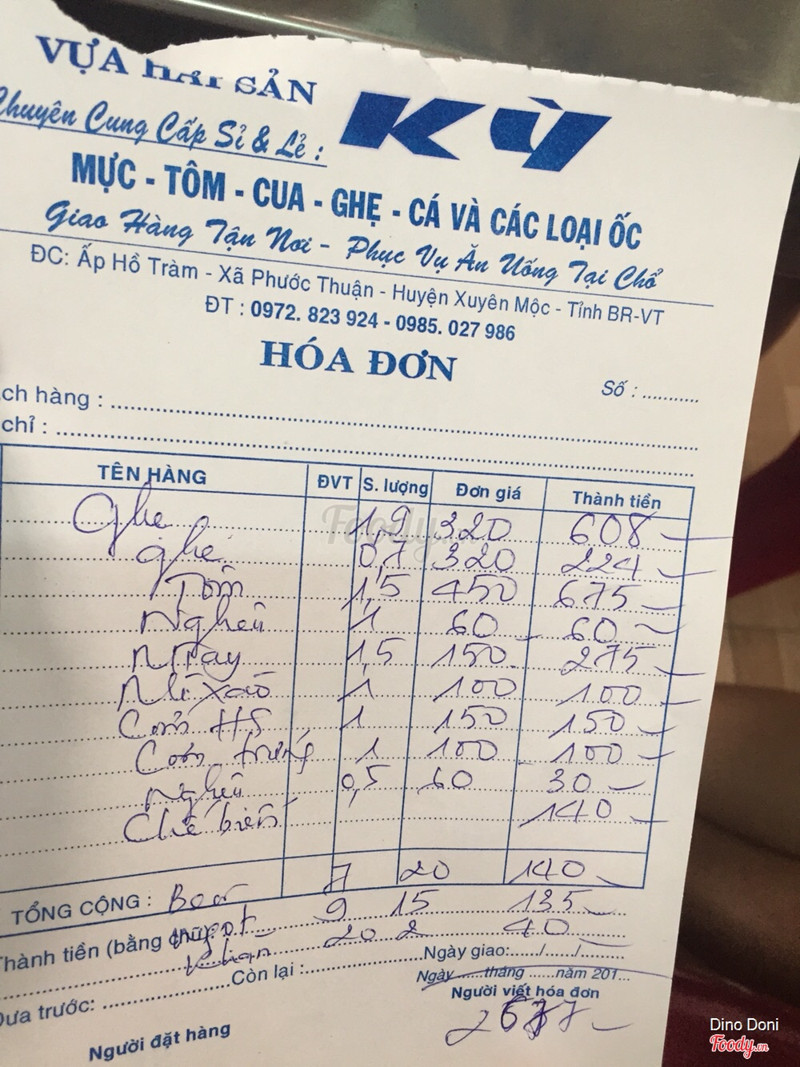 VỰA HẢI SẢN KỲ
Chuyên Cung Cấp Sỉ & Lẻ :
MỰC - TÔM - CUA - GHẸ - CÁ VÀ CÁC LOẠI ỐC
Giao Hàng Tận Nơi - Phục Vụ Ăn Uống Tại Chổ
ĐC: Ấp Hồ Tràm - Xã Phước Thuận - Huyện Xuyên Mộc - Tỉnh BR-VT
ĐT : 0972. 823 924 - 0985. 027 986
HÓA ĐƠN
Số : ...........
ch hàng :
chỉ :
TÊN HÀNG ĐVT S. lượng Đơn giá Thành tiền
Ghẹ 1,9 320 608
ghẹ 0,7 320 224
Tôm 1,5 450 675
Nghêu 1 60 60
1,5 150 275
Mì xào 1 100 100
Cơm HS 1 150 150
Cơm trứng 1 100 100
Nghêu 0,5 60 30
Chế biến 140
7 20 140
TỔNG CỘNG : Beer 9 15 135
Thành tiền (bằng chữ): 
Khăn 20 2 40
Ngày giao:....../....../......
Còn lại :
Ngày ......tháng ......năm 201...
Đưa trước:
Người viết hóa đơn
Người đặt hàng
Foody.vn
Dino Doni
Foody.vn